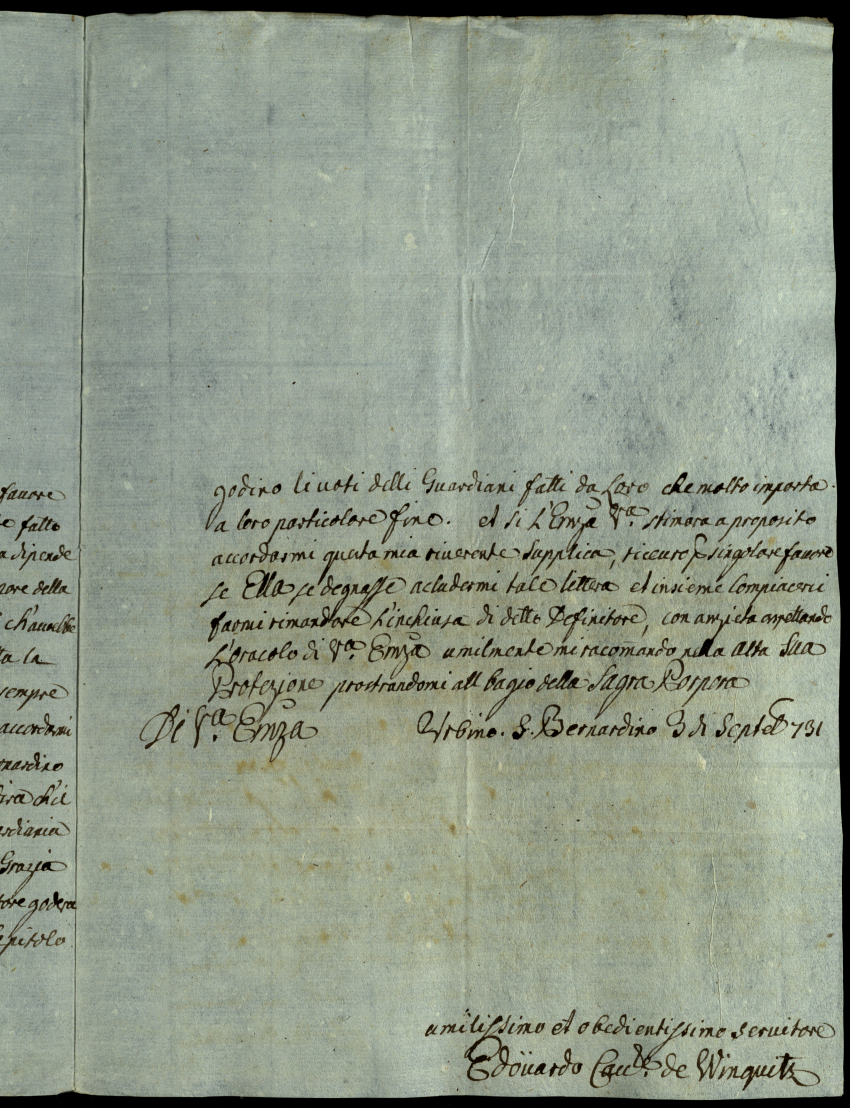 favore
fatto
dipende
della
ch'
la
sempre
accordarmi
ch'il
Grazia
godera
godino li voti delli Guardiani fatti da Loro che molto importa
a loro particolare fine. et si L'Emza Va. stimara a proposito
accordarmi questa mia riverente Supplica, riceuro p singolare favore
se Ella se degnasse acludermi tale lettera et insieme Compiacersi
farmi rimandare L'inchiusa di detto Definitore, con anzieta aspettando
L'oracolo di Va. Emza umilmente mi racomando nella alta Sua
Protezione prostrandomi all bagio della Sagra Porpora
Di Va. Emza Urbino. S. Bernardino 3 di Septeb 731
umilissimo et obedientissimo servitore
Edöuardo Caure. de Winquitz